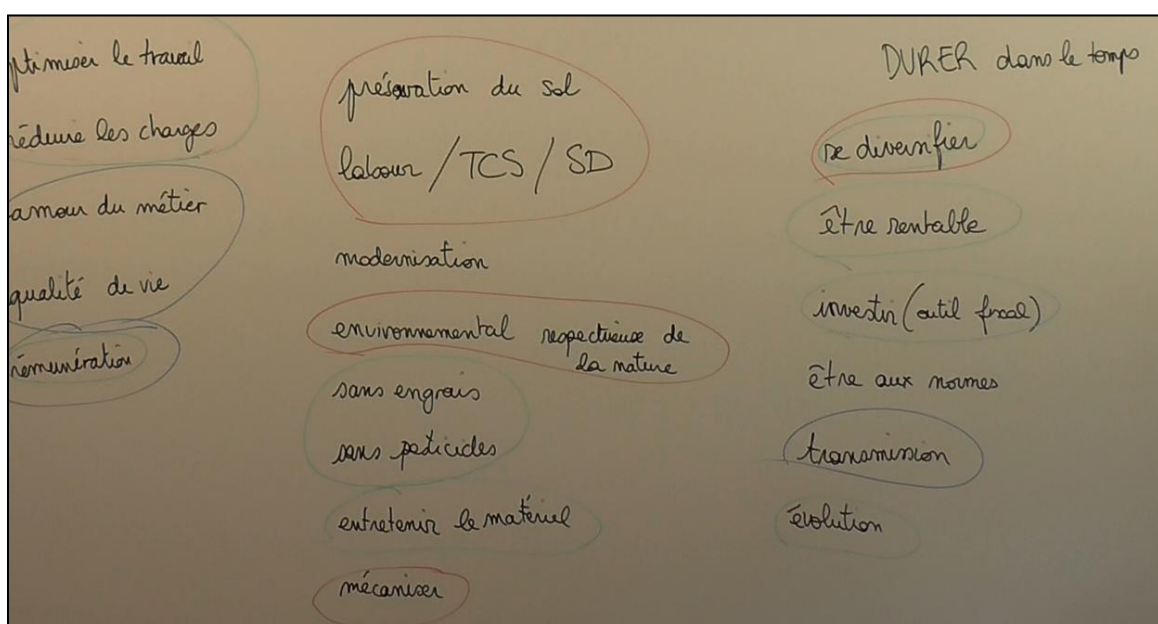 ptimiser le travail
réduire les charges
amour du métier
qualité de vie
rémunération
préservation du sol
labour / TCS / SD
modernisation
environnemental respectueuse de
la nature
sans engrais
sans peticides
entretenir le matériel
mécaniser
DURER dans le temps
se diversifier
être rentable
investir (outil fiscal)
être aux normes
transmission
évolution